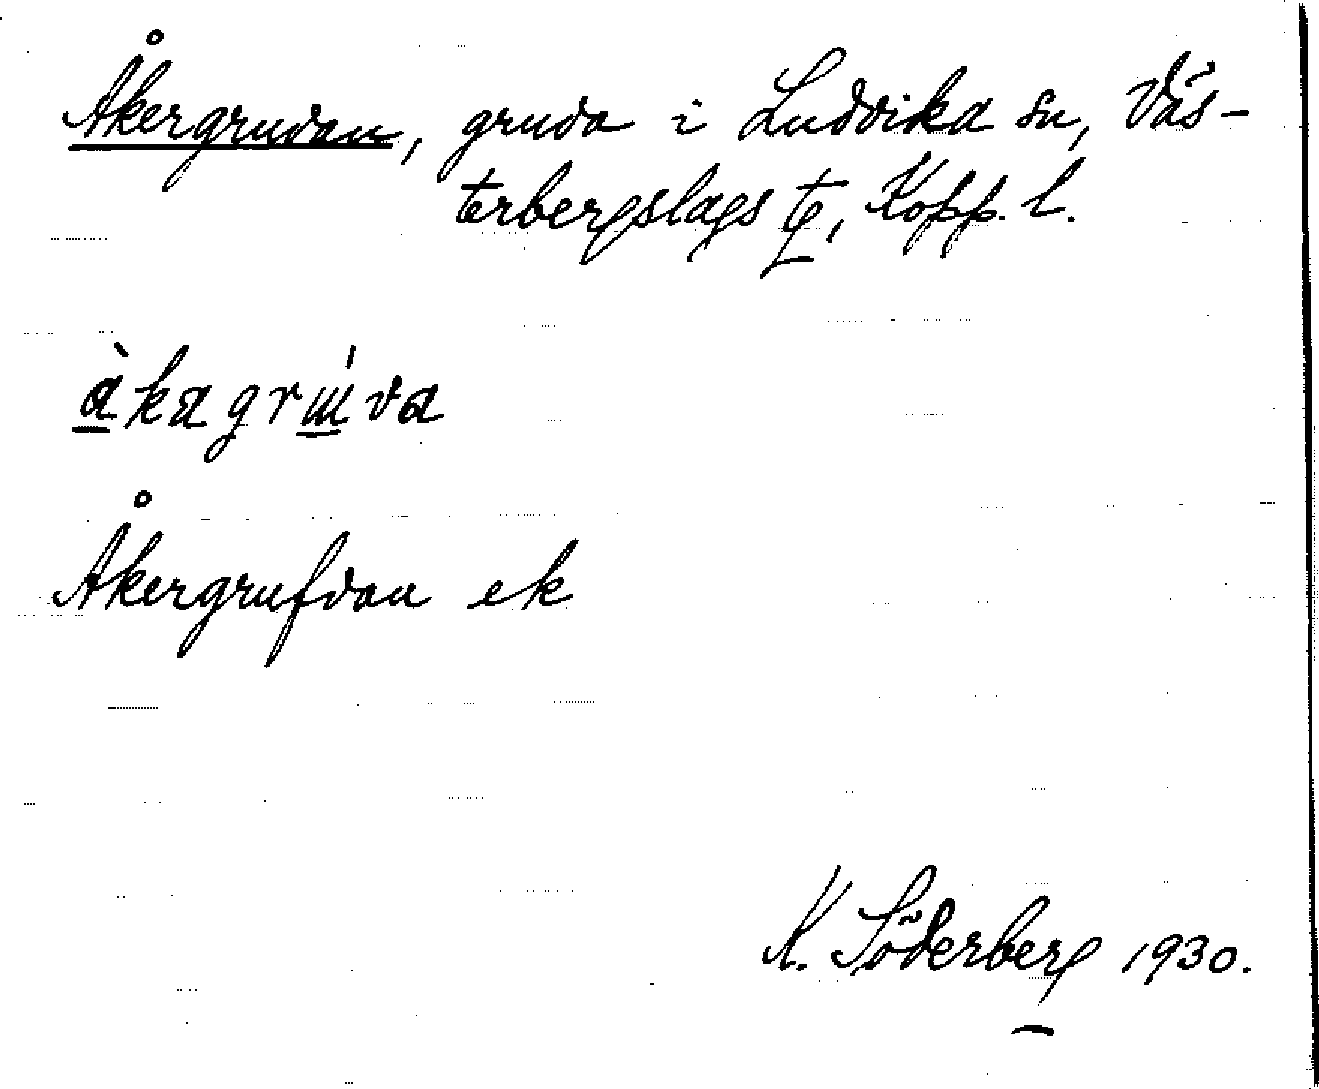 Åkergruvan, gruva i Ludvika sn, Väs-
terbergslags tg, Kopp. l.
àkagrɯ́va
Åkergrufvan ek
K. Söderberg 1930.